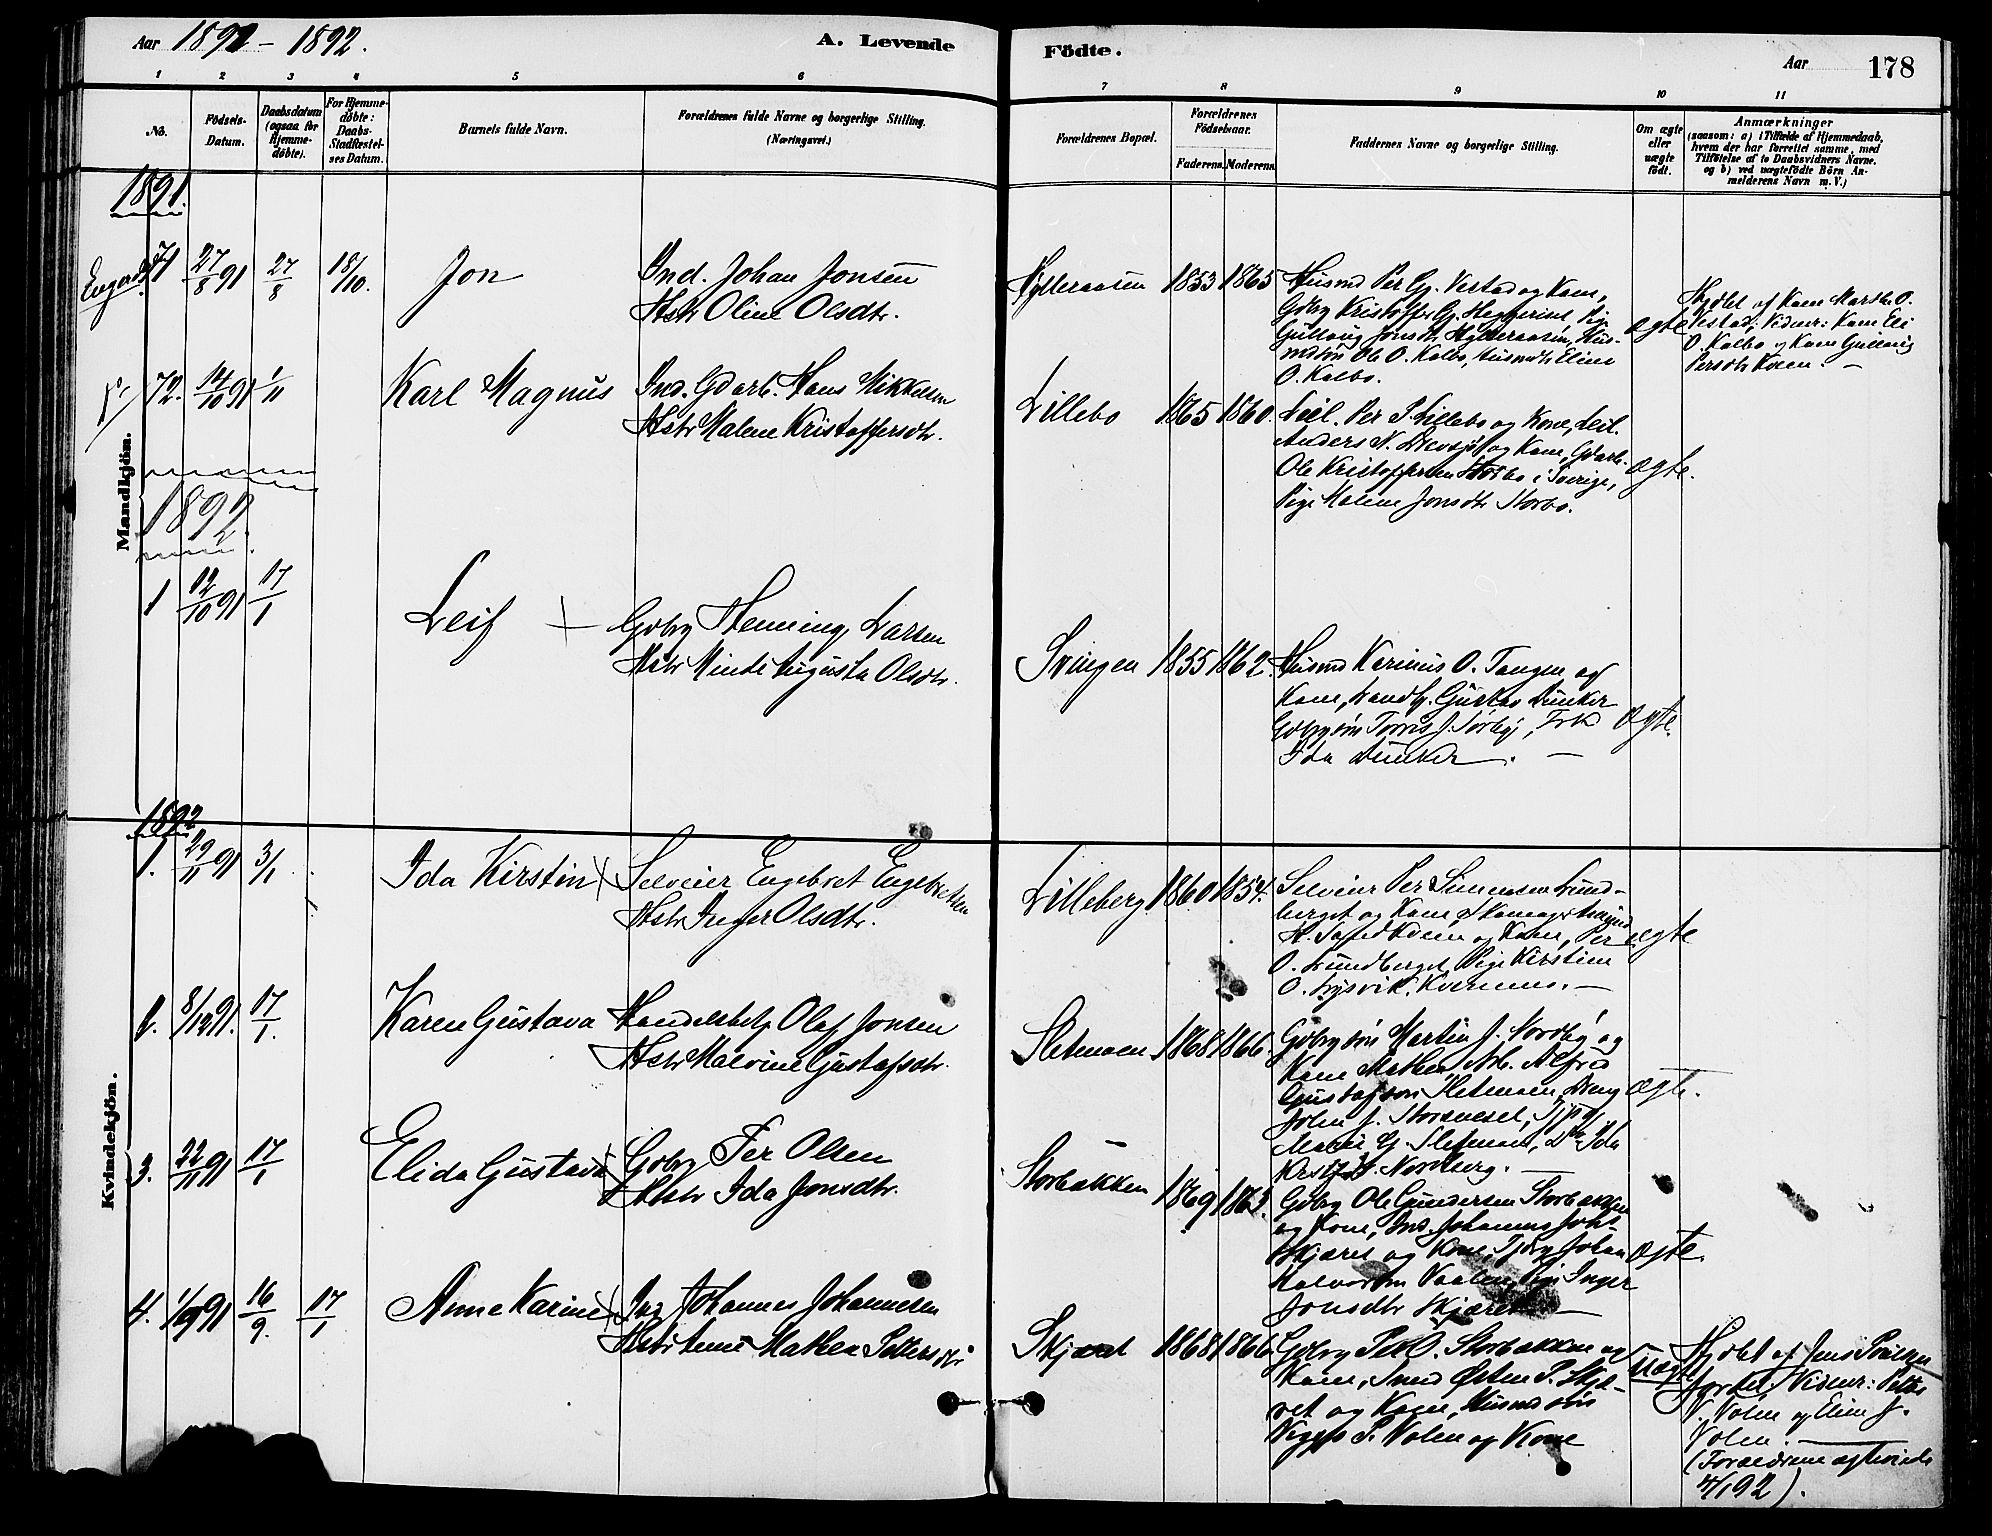 Aar 1891 - 1892.
A. Levende
Födte.
Aar
178
1 2 3 4 5 6
7 8 9 10 11
No.
Födsels-
Datum.
Daabsdatum
(ogsaa for
Hjemme-
döbte).
For Hjemme-
döbte:
Daabs-
Stadfæstel-
ses Datum.
Barnets fulde Navn.
Forældrenes fulde Navne og borgerlige Stilling.
(Næringsvei.)
Forældrenes Bopæl.
Forældrenes
Födselsaar.
Faderens. Moderens.
Faddernes Navne og borgerlige Stilling.
Om ægte
eller
uægte
födt.
Anmærkninger
(saasom: a) i Tilfælde af Hjemmedaab,
hvem der har forrettet samme, med
Tilföielse af to Daabsvidners Navne.
og b) ved uægtefödte Börn An-
melderens Navn m. V.)
Mandkjön.
1891.
71 27/8 91 27/8 18/10. Jon
Ind. Johan Jonsen
Hstr Oline Olsdtr.
Hylleraasen 1853 1865
Husmd Per G. Vestad og Kone,
Gbrg Kristoffer G. Heggeriset, Pige
Gullaug Jonsdtr Hylleraasen, Hus-
mdsøn Ole O. Kalbo, Husmdtr Eline
O. Kalbo.
ægte
Hjdbt af Kone Marthe O.
Vestad; Vidner: Kone Eli
O. Kalbo og Kone Gullaug
Persdtr Kveen. —
72. 14/10 91 1/11 Karl Magnus
Ind. Gdarb. Hans Mikkelsen
Hstr Malene Kristoffersdtr.
Lillebo 1865 1860.
Leil. Per P. Lillebo og Kone, Leil.
Anders N. Drevsjø og Kone, Gdarb.
Ole Kristoffersen Storbo i Sverige,
Pige Malene Jonsdtr Storbo.
ægte.
1892.
1 12/10 91 17/1 Leif
Gdbrg Henning Larsen
Hstr Minde Augusta Olsdtr.
Svingen 1855 1862.
Husmd Karinus O. Tangen og
Kone, Landh. Gustav Dunker
Gdbrgsøn Torris J. Sørby, Frk
Ida Dunker. —
ægte.
Kvindekjön.
1892
1. 29/11 91 3/1 Ida Kirstin
Selveier Engebret Engebretsen
Hstr Inger Olsdtr.
Lilleberg 1860 1854.
Selveier Per Simensen Lund-
berget og Kone, Skomager
og Kone, Per
O. Lundberget, Pige Kirstine
O. Lysvik. Kvernnes. —
ægte
2. 8/12 91. 17/1. Karen Gustava
Handelsbetj Olaf Jonsen
Hstr Malvine Gustafsdtr.
Sletmoen 1868 1866.
Gdbrgsøn Martin J. Nordby og
Kone Mathea, Arb. Alfred
Gustafson Sletmoen, Dreng
John J. Storsveet, Pige
Marie G. Sletmoen, Do Ida
Nordberg. —
ægte.
3. 22/11 91 17/1 Elida Gustava
Gdbrg Per Olsen
Hstr Ida Jonsdtr.
Storbakken 1869 1863.
Gdbrg Ole Gundersen Storbakken
og Kone, Ind. Johannes Joh.
Skjæret og Kone, Johan
Halvorsen Vaalen, Pige Inger
Jonsdtr Skjæret —
ægte.
4. 1/9 91 16/9. 17/1 Anne Karine
Ind Johannes Johannesen
Hstr Anne Mathea Pettersdtr
Skjæret 1868 1866.
Gdbrg Per O. Storbakken og
Kone, Smed Østen P. Skjæ-
ret og Kone, Husmdsøn
P. Volen og Kone
uægte
Hjdbt af Jens
Vidner: Petter
Volen og Eline J.
Volen. —
(Forældrene ægteviede
4/1 92).